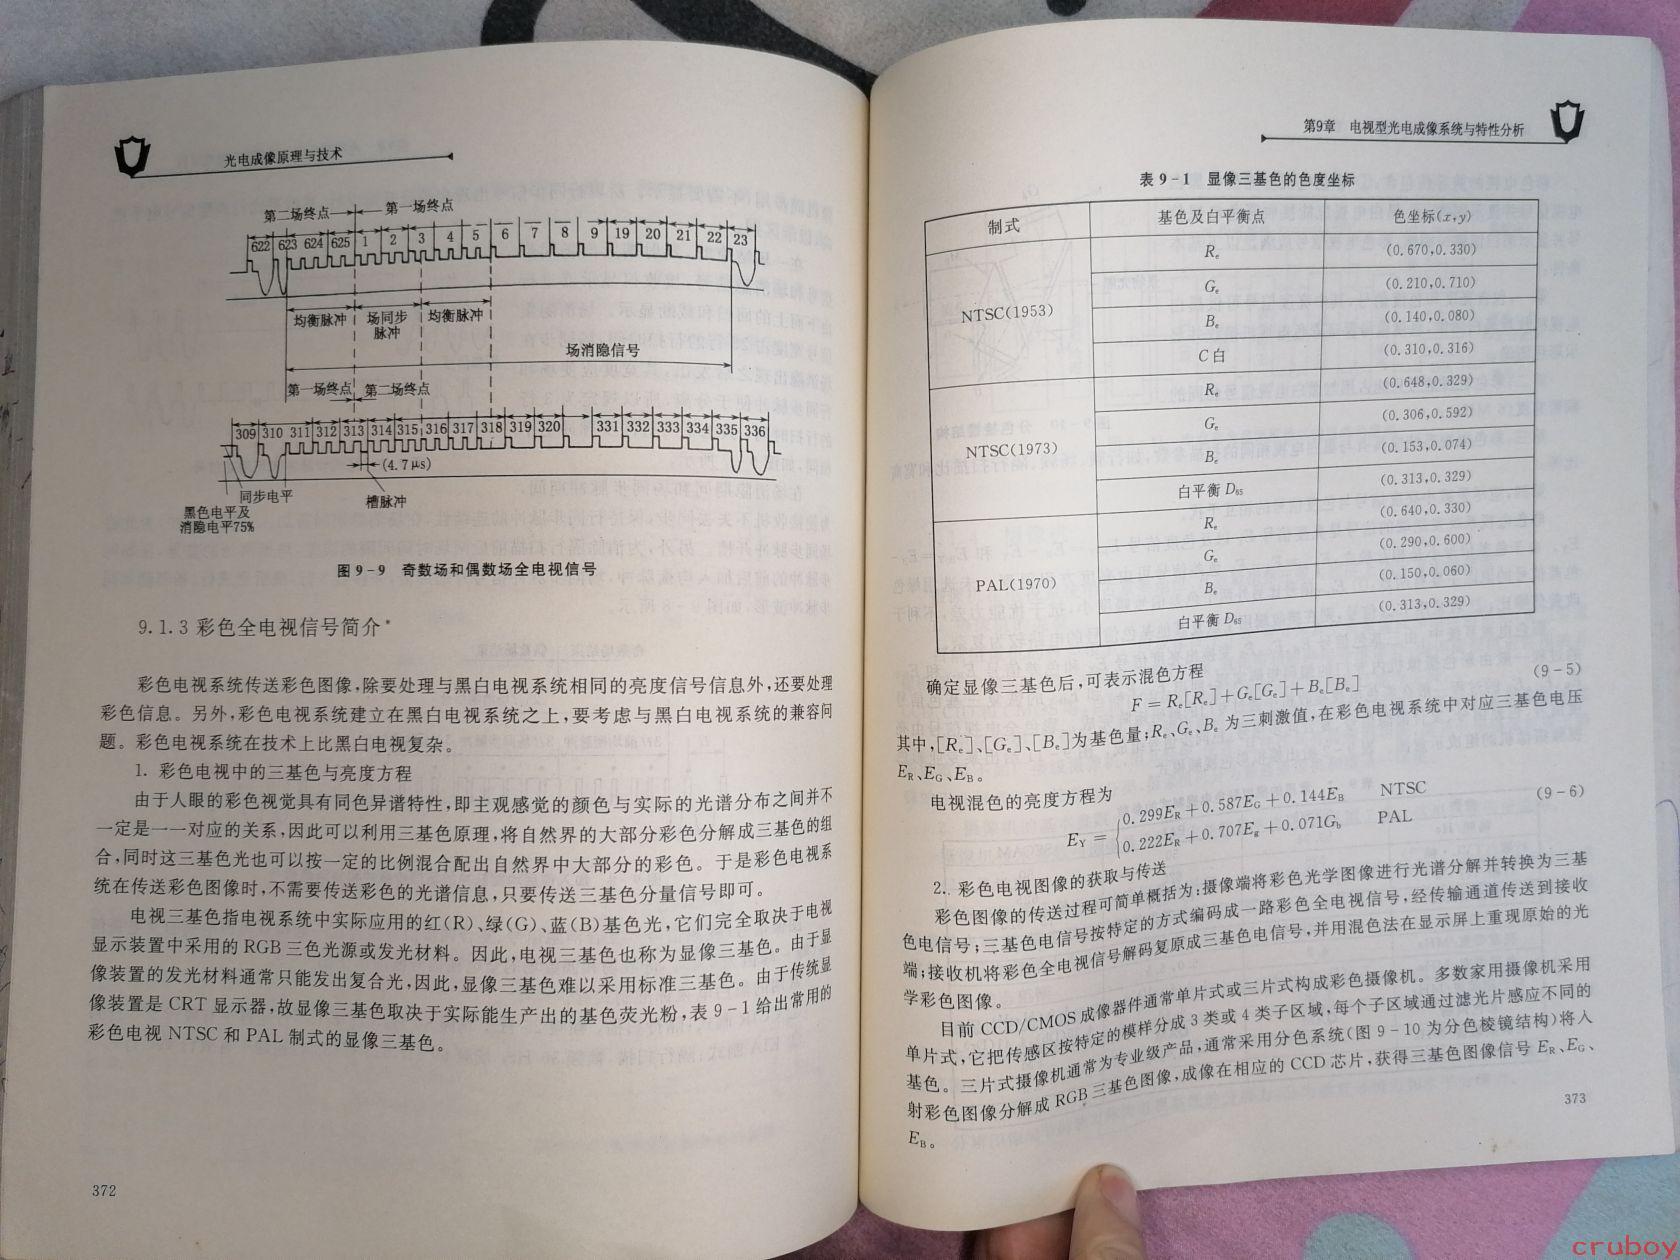 光电成像原理与技术
第二场终点 第一场终点
622 623 624 625 1 2 3 4 5 6 7 8 9 19 20 21 22 23
均衡脉冲 场同步脉冲 均衡脉冲
场消隐信号
第一场终点 第二场终点
309 310 311 312 313 314 315 316 317 318 319 320 331 332 333 334 335 336
(4.7 μs)
同步电平
槽脉冲
黑色电平及
消隐电平75%
图 9-9 奇数场和偶数场全电视信号
9.1.3 彩色全电视信号简介*
彩色电视系统传送彩色图像,除要处理与黑白电视系统相同的亮度信号信息外,还要处理
彩色信息。另外,彩色电视系统建立在黑白电视系统之上,要考虑与黑白电视系统的兼容问
题。彩色电视系统在技术上比黑白电视复杂。
1. 彩色电视中的三基色与亮度方程
由于人眼的彩色视觉具有同色异谱特性,即主观感觉的颜色与实际的光谱分布之间并不
一定是一一对应的关系,因此可以利用三基色原理,将自然界的大部分彩色分解成三基色的组
合,同时这三基色光也可以按一定的比例混合配出自然界中大部分的彩色。于是彩色电视系
统在传送彩色图像时,不需要传送彩色的光谱信息,只要传送三基色分量信号即可。
电视三基色指电视系统中实际应用的红(R)、绿(G)、蓝(B)基色光,它们完全取决于电视
显示装置中采用的 RGB 三色光源或发光材料。因此,电视三基色也称为显像三基色。由于显
像装置的发光材料通常只能发出复合光,因此,显像三基色难以采用标准三基色。由于传统显
像装置是 CRT 显示器,故显像三基色取决于实际能生产出的基色荧光粉,表 9-1 给出常用的
彩色电视 NTSC 和 PAL 制式的显像三基色。
372
第9章 电视型光电成像系统与特性分析
表 9-1 显像三基色的色度坐标
制式 基色及白平衡点 色坐标(x,y)
NTSC(1953) Re (0.670,0.330)
Ge (0.210,0.710)
Be (0.140,0.080)
C 白 (0.310,0.316)
NTSC(1973) Re (0.648,0.329)
Ge (0.306,0.592)
Be (0.153,0.074)
白平衡 D65 (0.313,0.329)
PAL(1970) Re (0.640,0.330)
Ge (0.290,0.600)
Be (0.150,0.060)
白平衡 D65 (0.313,0.329)
确定显像三基色后,可表示混色方程
F = Re[Re]+Ge[Ge]+Be[Be] (9-5)
其中,[Re]、[Ge]、[Be]为基色量;Re、Ge、Be 为三刺激值,在彩色电视系统中对应三基色电压
ER、EG、EB。
电视混色的亮度方程为
EY = { 0.299ER+0.587EG+0.144EB NTSC (9-6)
0.222ER+0.707Eg+0.071Gb PAL
2. 彩色电视图像的获取与传送
彩色图像的传送过程可简单概括为:摄像端将彩色光学图像进行光谱分解并转换为三基
色电信号;三基色电信号按特定的方式编码成一路彩色全电视信号,经传输通道传送到接收
端;接收机将彩色全电视信号解码复原成三基色电信号,并用混色法在显示屏上重现原始的光
学彩色图像。
目前 CCD/CMOS 成像器件通常单片式或三片式构成彩色摄像机。多数家用摄像机采用
单片式,它把传感区按特定的模样分成 3 类或 4 类子区域,每个子区域通过滤光片感应不同的
基色。三片式摄像机通常为专业级产品,通常采用分色系统(图 9-10 为分色棱镜结构)将人
射彩色图像分解成 RGB 三基色图像,成像在相应的 CCD 芯片,获得三基色图像信号 ER、EG、
EB。
373
cruboy